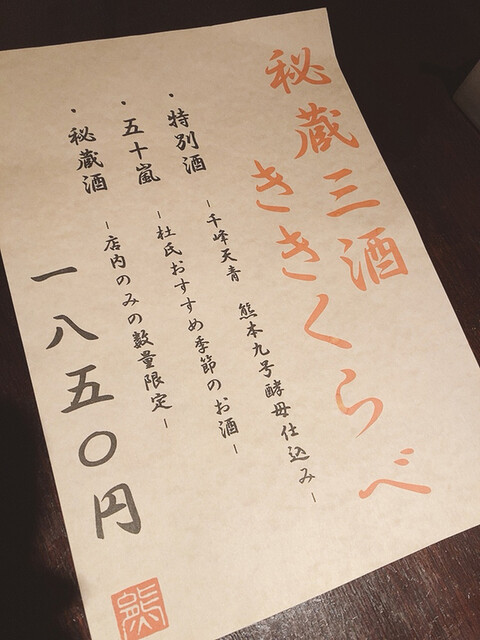 秘蔵三酒
ききくらべ
・特別酒
-千峰天青 熊本九号酵母仕込み-
・五十嵐
-杜氏おすすめ季節のお酒-
・秘蔵酒
-店内のみの数量限定-
一八五〇円
熊